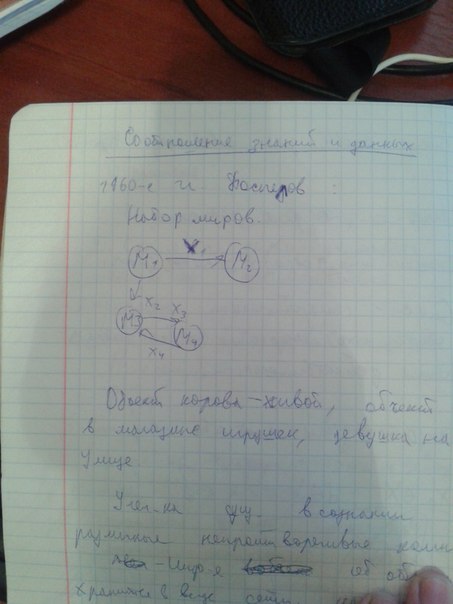 Соотношение знаний и данных
1960-е гг Поспелов :
Набор миров.
M1 X1 M2
X2 X3
M3 M4
X4
Объект корова - живой, объект
в магазине игрушек, девушка на
улице.
У чел-ка сущ. в сознании
различные непротиворечивые
- Инф-я об об
хранится в виде сети